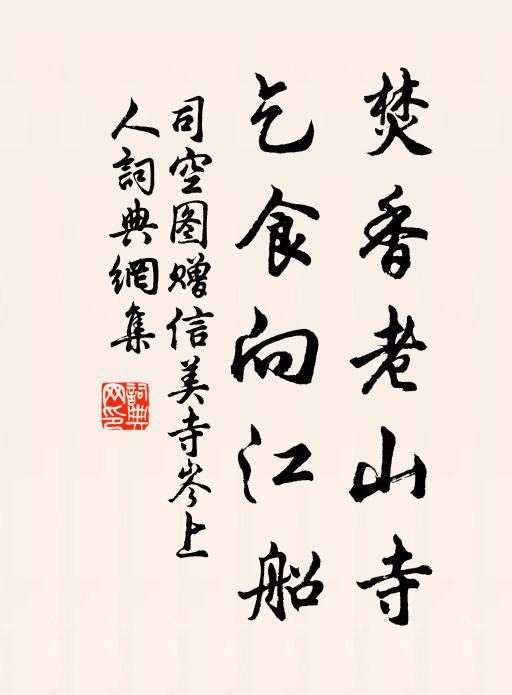 焚香老山寺
乞食向江船
司空图赠信美寺岑上
人詞典網集
詞典网印